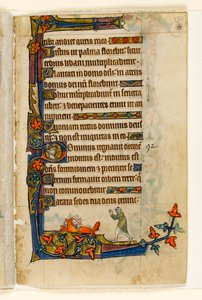 audiet auris mea
Iustus ut palma florebit sicut
cedrus libani multiplicabitur
Plantati in domo dni in atriis
domus dei nri florebunt
Adhuc multiplicabuntur in senecta
uberi et benepacientes erunt ut an
nuncient
Quoniam rectus dominus deus
non est iniquitas in eo
92
Dominus regnavit decore
indutus est indutus est
dns fortitudinem et precinxit se
Etenim firmavit orbem terre q
non commovebitur
Parata sedes tua deus ex tunc